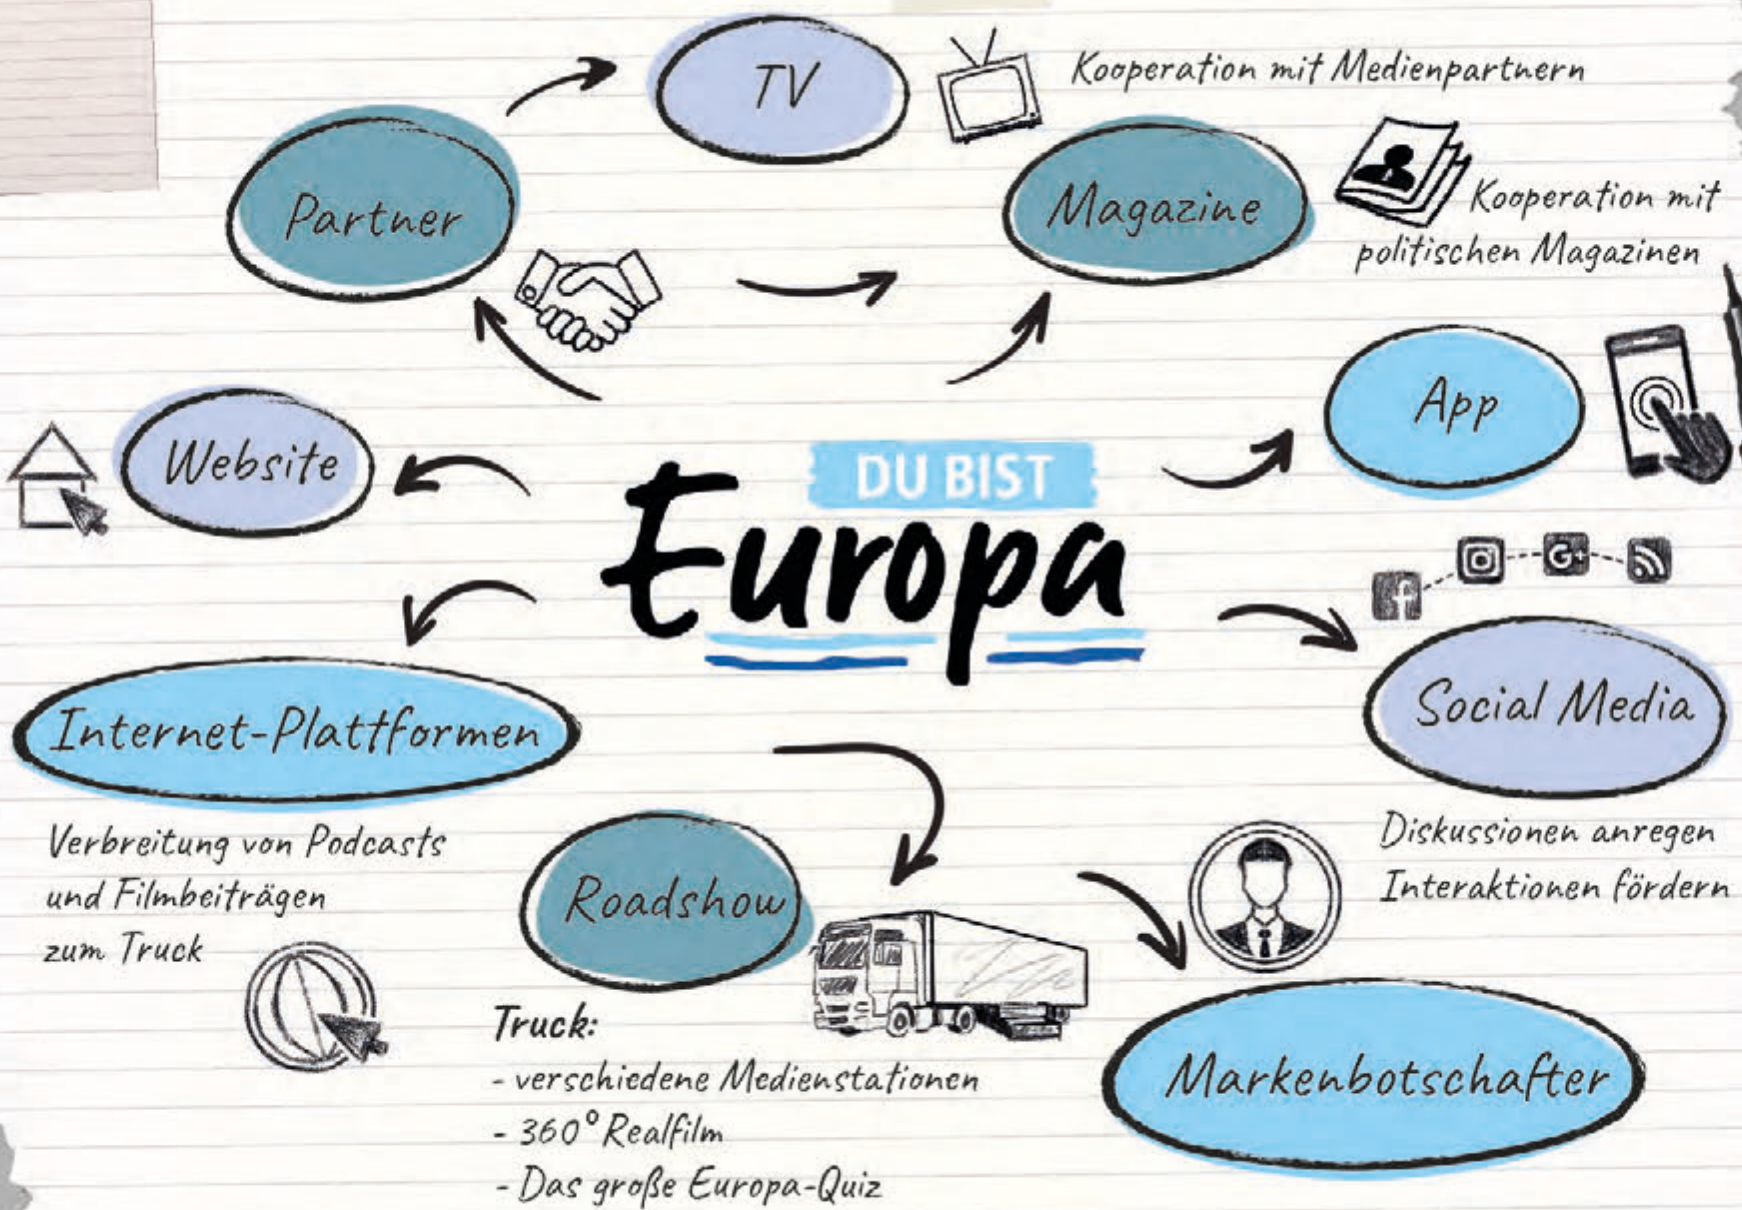 TV
Kooperation mit Medienpartnern
Partner
Magazine
Kooperation mit
politischen Magazinen
App
Website
DU BIST
Europa
f
G+
Social Media
Internet-Plattformen
Diskussionen anregen
Interaktionen fördern
Verbreitung von Podcasts
und Filmbeiträgen
zum Truck
Roadshow
Truck:
- verschiedene Medienstationen
- 360° Realfilm
- Das große Europa-Quiz
Markenbotschafter